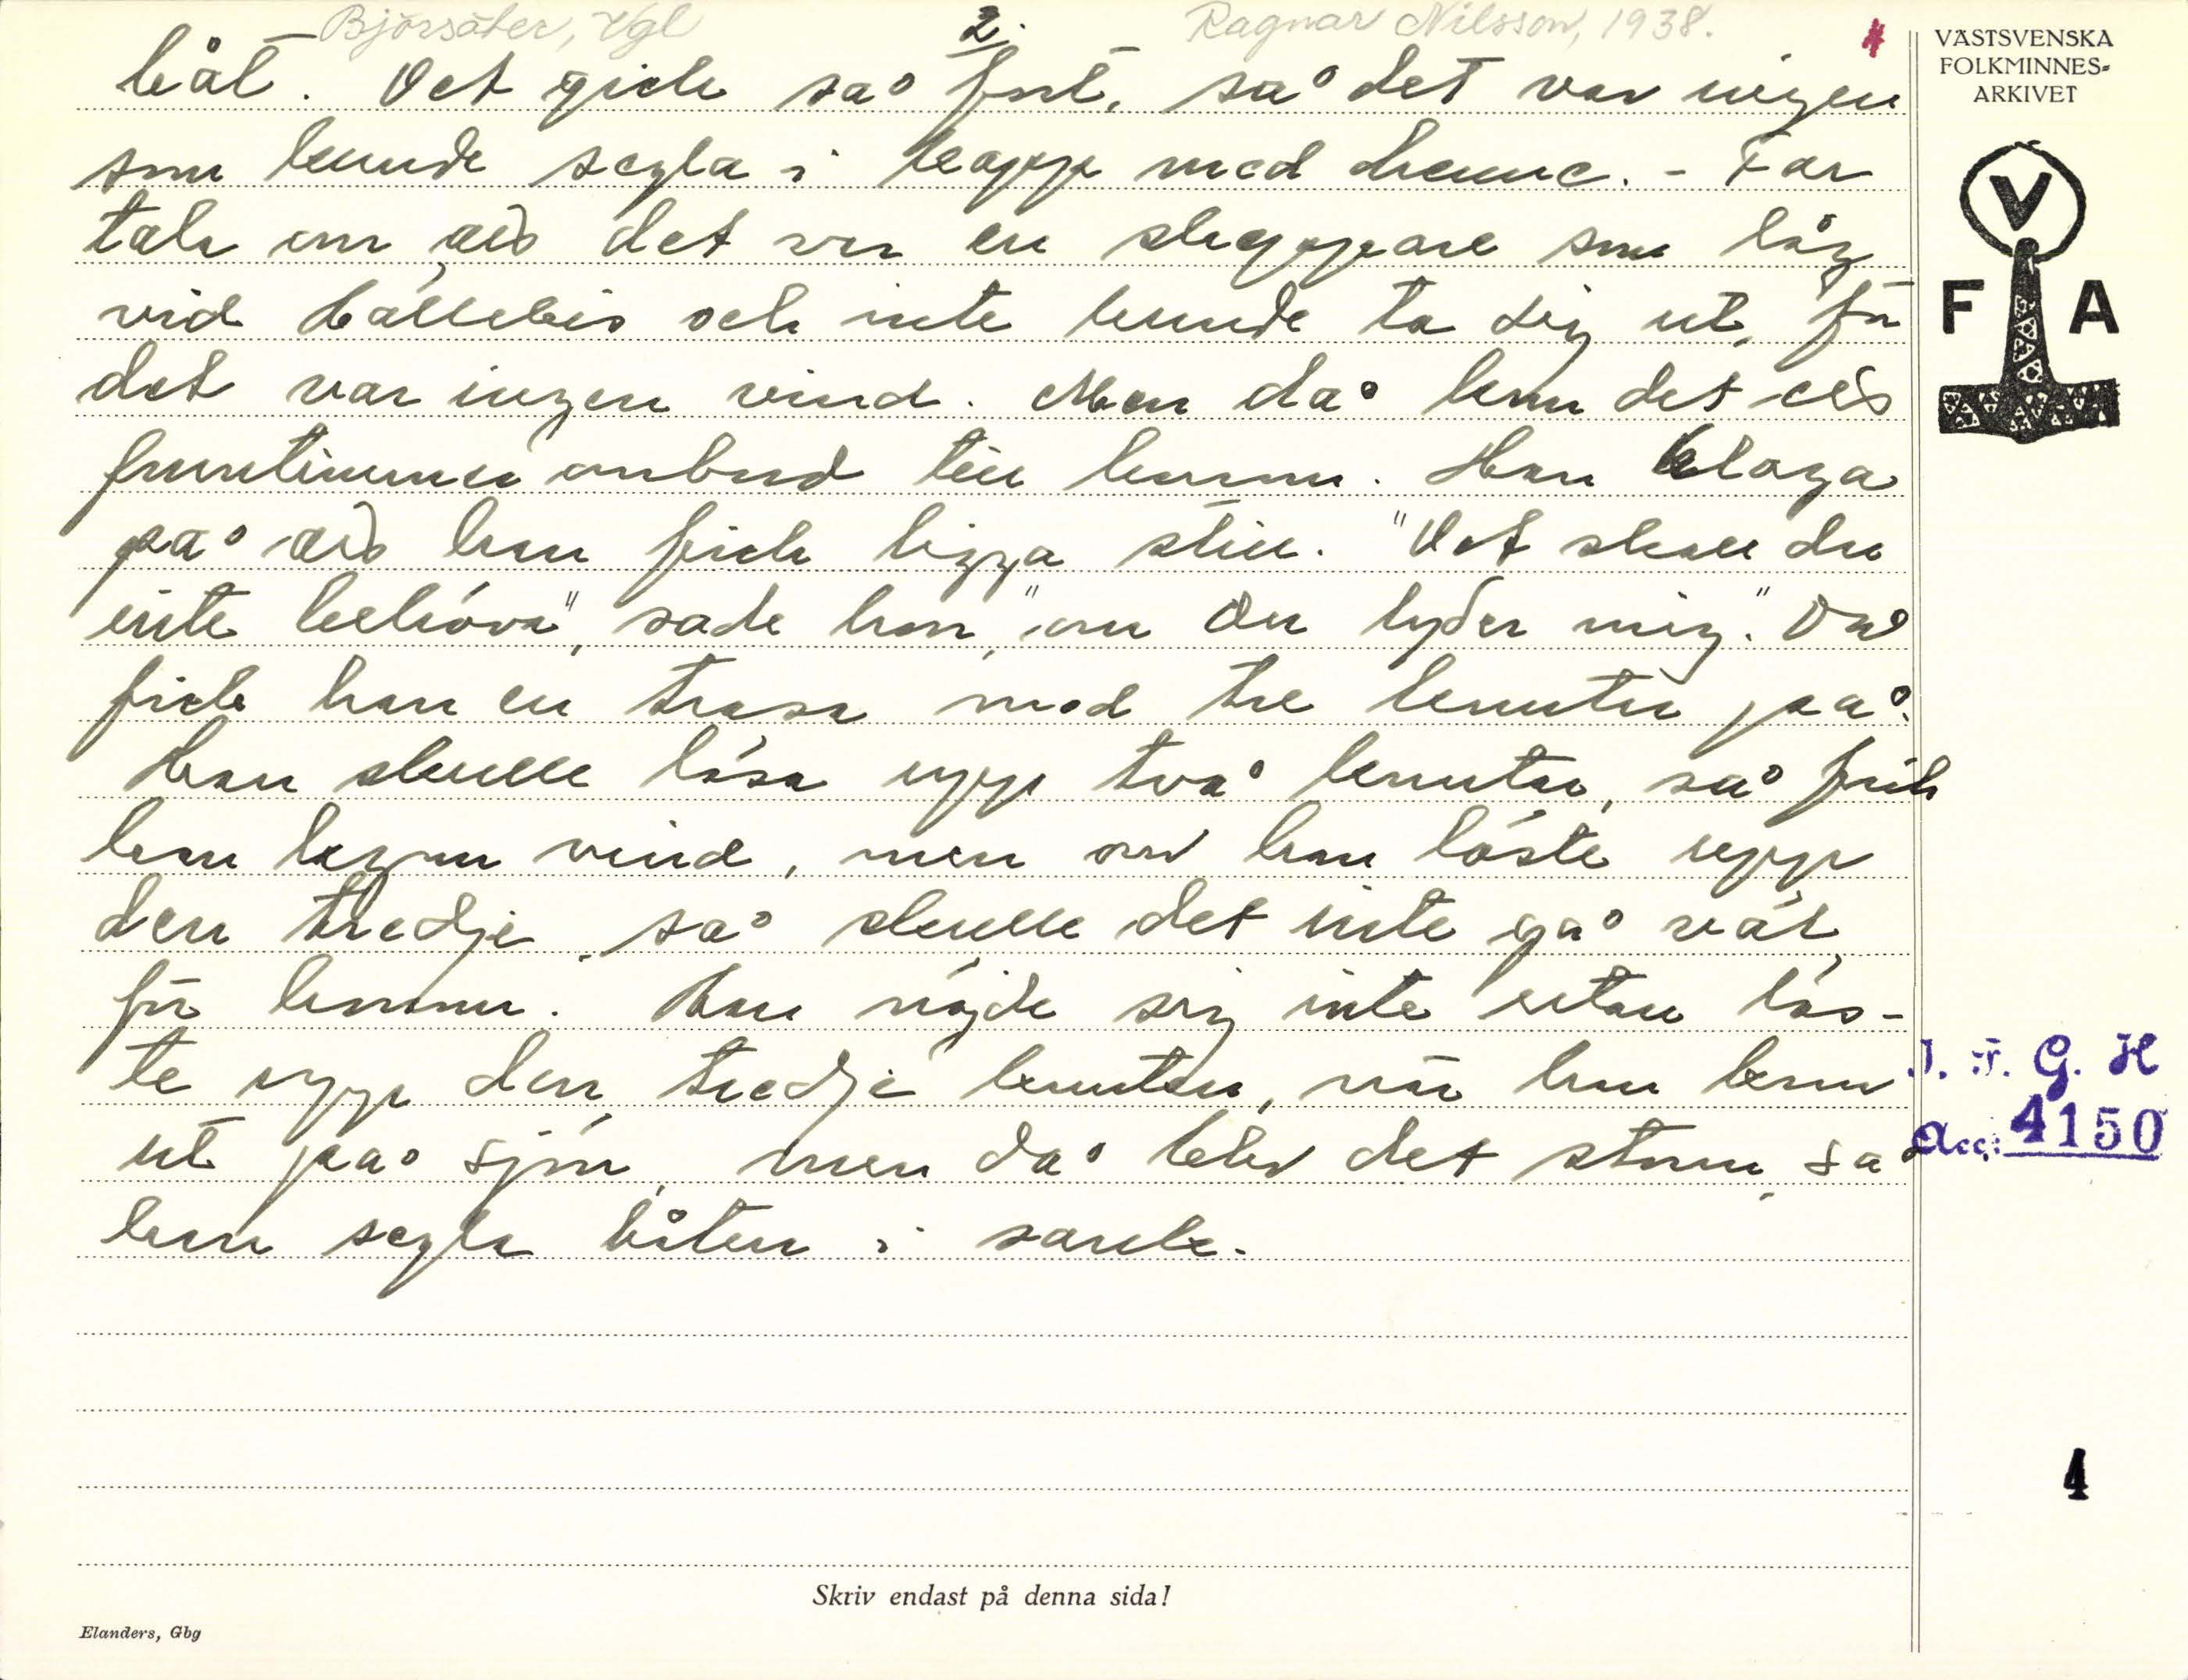 Björsäter, Vgl
2.
Ragnar Nilsson, 1938.
4
båt. Det gick så fort, så det var ingen
som kunde segla i kapp med henne. - Far
tala om, att det var en skeppare som låg
vid Hällekis och inte kunde ta sig ut, för
det var ingen vind. Men då kom det ett
fruntimmer ombord till honom. Han klaga
på att han fick ligga still. "Det skall du
inte behöva", sade hon, "om du lyder mig." Då
fick han en trasa med tre knutar på.
Han skulle lösa upp två knutar, så fick
han lagom vind, men om han löste upp
den tredje, så skulle det inte gå väl
för honom. Han nöjde sig inte utan lös-
te upp den tredje knuten, när han kom
ut på sjön, men då blev det storm, så
han segla båten i sank.
VÄSTSVENSKA
FOLKMINNES-
ARKIVET
V
F A
I. F. G. H
Acc: 4150
4
Skriv endast på denna sida!
Elanders, Gbg